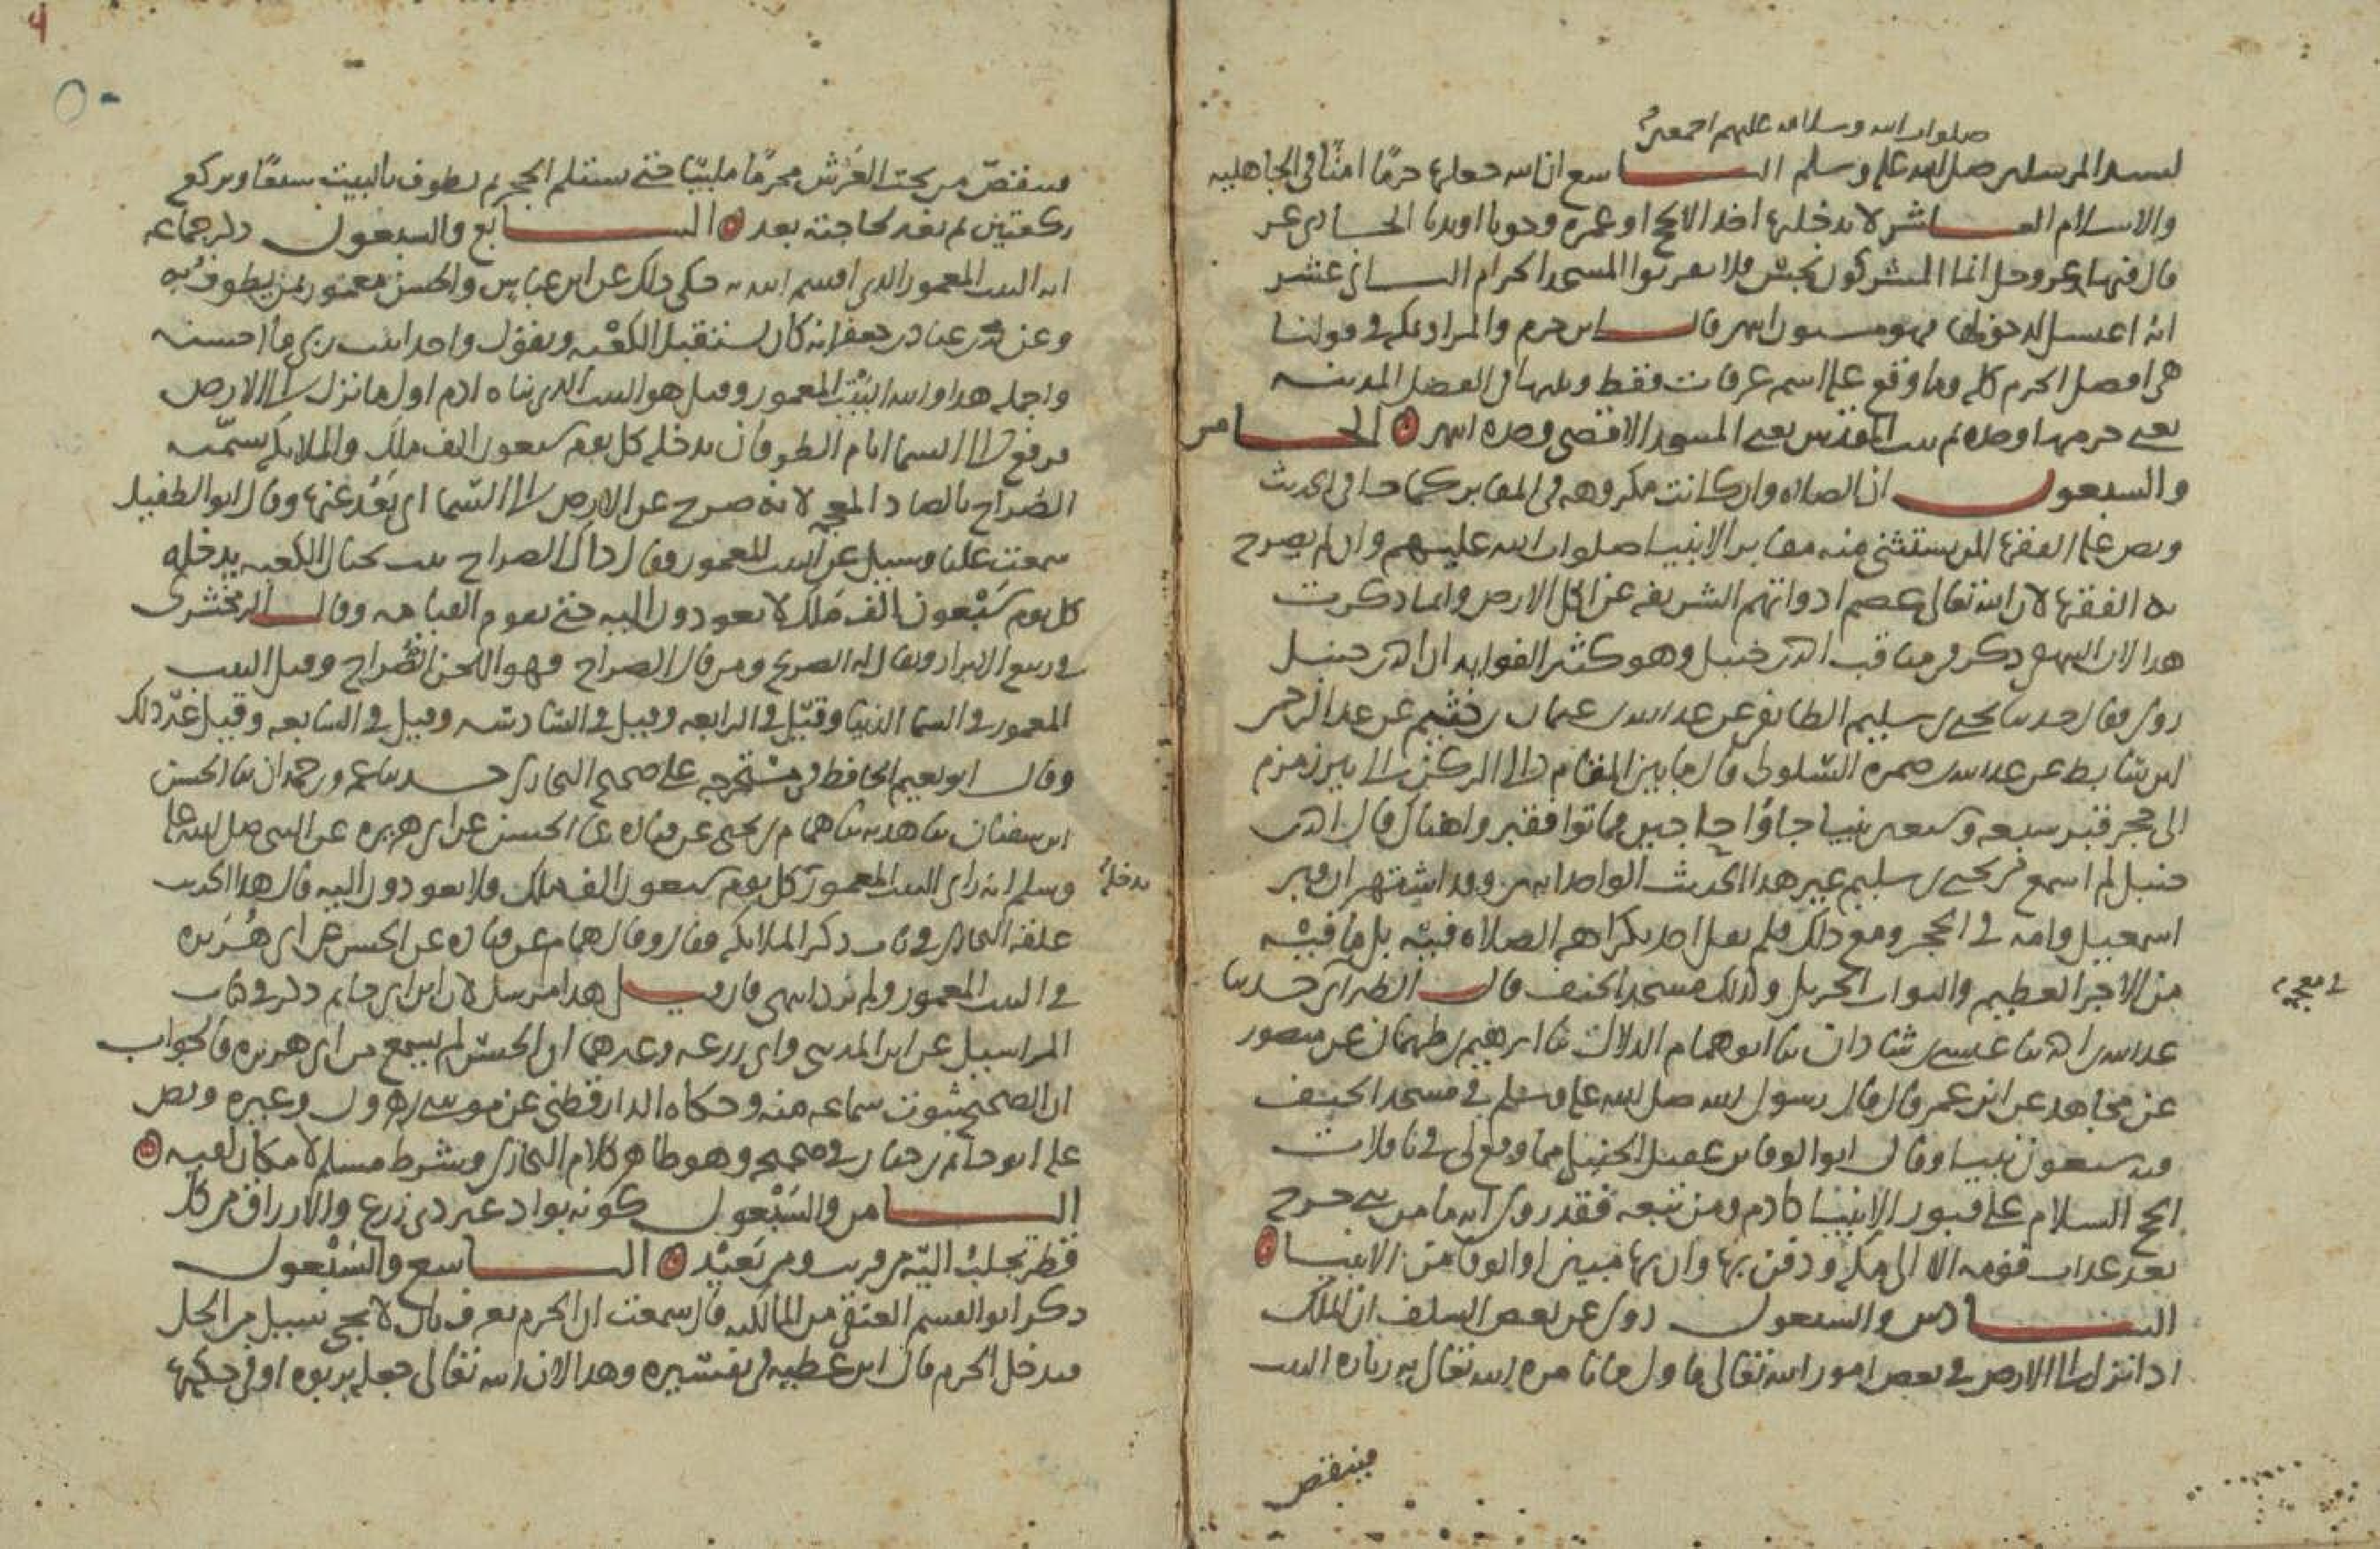 صلوات الله وسلامه عليهم اجمعين
لسيد المرسلين صلى الله عليه وسلم التاسع ان الله جعلها حرما امنا في الجاهليه
والاسلام العاشر لا يدخلها احد الا بحج او عمرة وجوبا او ندبا الحادي عشر
قال فيها عز وجل انما المشركون نجس فلا يقربوا المسجد الحرام الثاني عشر
انه اغتسل لدخولها فهو مسنون انتهى قال ابن حزم والمراد بمكه في قولنا
هي افضل الحرم كله وما وقع عليه اسم عرفات فقط ويليها في الفضل المدينه
يعني حرمها وحده ثم بيت المقدس يعني المسجد الاقصى وحده انتهى الخامس
والسبعون ان الصلاه وان كانت مكروهه في المقابر كما جا في الحديث
ونص عليه الفقها المن يستثنى منه مقابر الانبيا صلوات الله عليهم وان لم يصرح
به الفقها لان الله تعالى عصم ذواتهم الشريفه عن اكل الارض وانما ذكرت
هذا لان البيهقي ذكر في مناقب احمد بن حنبل وهو كثير الفوايد ان احمد بن حنبل
روى فقال حدثنا يحيى بن سليم الطايفي عن عبد الله بن عثمان بن خثيم عن عبد الرحمن
ابن سابط عن عبد الله بن ضمره السلولي قال ما بين المقام الى الركن الى بير زمزم
الى حجر قبر سبعه وسبعين نبيا جاؤا حاجين فماتوا فقبروا هناك قال احمد بن
حنبل لم اسمع من يحيى بن سليم غير هذا الحديث الواحد انتهى وقد اشتهر ان قبر
اسمعيل وامه في الحجر ومع ذلك فلم يقل احد بكراهه الصلاه فيه بل ما فيه
من الاجر العظيم والثواب الجزيل وكذلك مسجد الخيف قال الطبراني حدثنا
في معجمه
عبد الله بن احمد ثنا عيسى بن شاذان ثنا ابو همام الدلال ثنا ابرهيم بن طهمان عن منصور
عن مجاهد عن ابن عمر قال قال رسول الله صلى الله عليه وسلم في مسجد الخيف
قبر سبعون نبيا وقال ابو الوفا بن عقيل الحنبلي مما وقع لي في تاملات
الحج السلام على قبور الانبيا كادم ومن تبعه فقد روى انه ما من نبي خرج
بعد عذاب قومه الا الى مكه ودفن بها وان بها مبين او الوفا من الانبيا
السادس والسبعون روى عن بعض السلف ان الملك
اذا نزل الى الارض في بعض امور الله تعالى فاول ما يامره الله تعالى به زياره البيت
فينقض
فينقض من تحت العرش محرما ملبيا حتى يستلم الحجر ثم يطوف بالبيت سبعا ويركع
ركعتين ثم يعد لحاجته بعد السابع والسبعون ذكر جماعه
انه البيت المعمور الذي اقسم الله به حكي ذلك عن ابن عباس والحسن معمور بمن يطوف به
وعن محمد بن عباد بن جعفر انه كان يستقبل الكعبه ويقول واحد بيت ربي ما احسنه
واجمله هذا والله البيت المعمور وقيل هو البيت الذي بناه ادم اول ما نزل الى الارض
فرفع الى السما ايام الطوفان يدخله كل يوم سبعون الف ملك والملايكه تسميه
الضراح بالضاد المعجمه لانه صرح عن الارض الى السما اي بعد عنها وقال ابو الطفيل
سمعت عليا وسيل عن البيت المعمور فقال ذاك الضراح بيت بحيال الكعبه يدخله
كل يوم سبعون الف ملك لا يعودون اليه حتى تقوم القيامه وقال الزمخشري
في ربيع الابرار ويقال له الضريح ومن قال الصراح فهو اللحن الصراح وقيل البيت
المعمور في السما الدنيا وقيل في الرابعه وقيل في السادسه وقيل في السابعه وقيل غير ذلك
وقال ابو نعيم الحافظ في مستخرجه على صحيح البخاري حدثنا عمرو بن حمدان ثنا الحسن
ابن سفيان ثنا هدبه ثنا همام بن يحيى عن قتاده ثنا الحسن عن ابي هريره عن النبي صلى الله عليه
وسلم انه راى البيت المعمور كل يوم سبعون الف ملك ولا يعودون اليه قال هذا الحديث
يدخله
علقه البخاري في باب ذكر الملايكه فقال وقال همام عن قتاده عن الحسن عن ابي هريره
في البيت المعمور ولم يزد انتهى فان قيل هذا مرسل لان ابن ابي حاتم ذكر في كتاب
المراسيل عن ابن المديني وابي زرعه وغيرهما ان الحسن لم يسمع من ابي هريره فالجواب
ان الصحيح ثبوت سماعه منه وحكاه الدارقطني عن موسى بن هرون وغيره ونص
عليه ابو حاتم بن حبان في صحيحه وهو ظاهر كلام البخاري وشرط مسلم لامكان لقيه
الثامن والسبعون كونه بواد غير ذي زرع والارزاق من كل
قطر تجلب اليه من قريب ومن بعيد التاسع والسبعون
ذكر ابو القسم العتقي من المالكيه قال سمعت ان الحرم يعرف بان لا يجي سيل من الحل
فيدخل الحرم قال ابن عطيه في تفسيره وهذا لان الله تعالى جعله بربوه او في حكمها